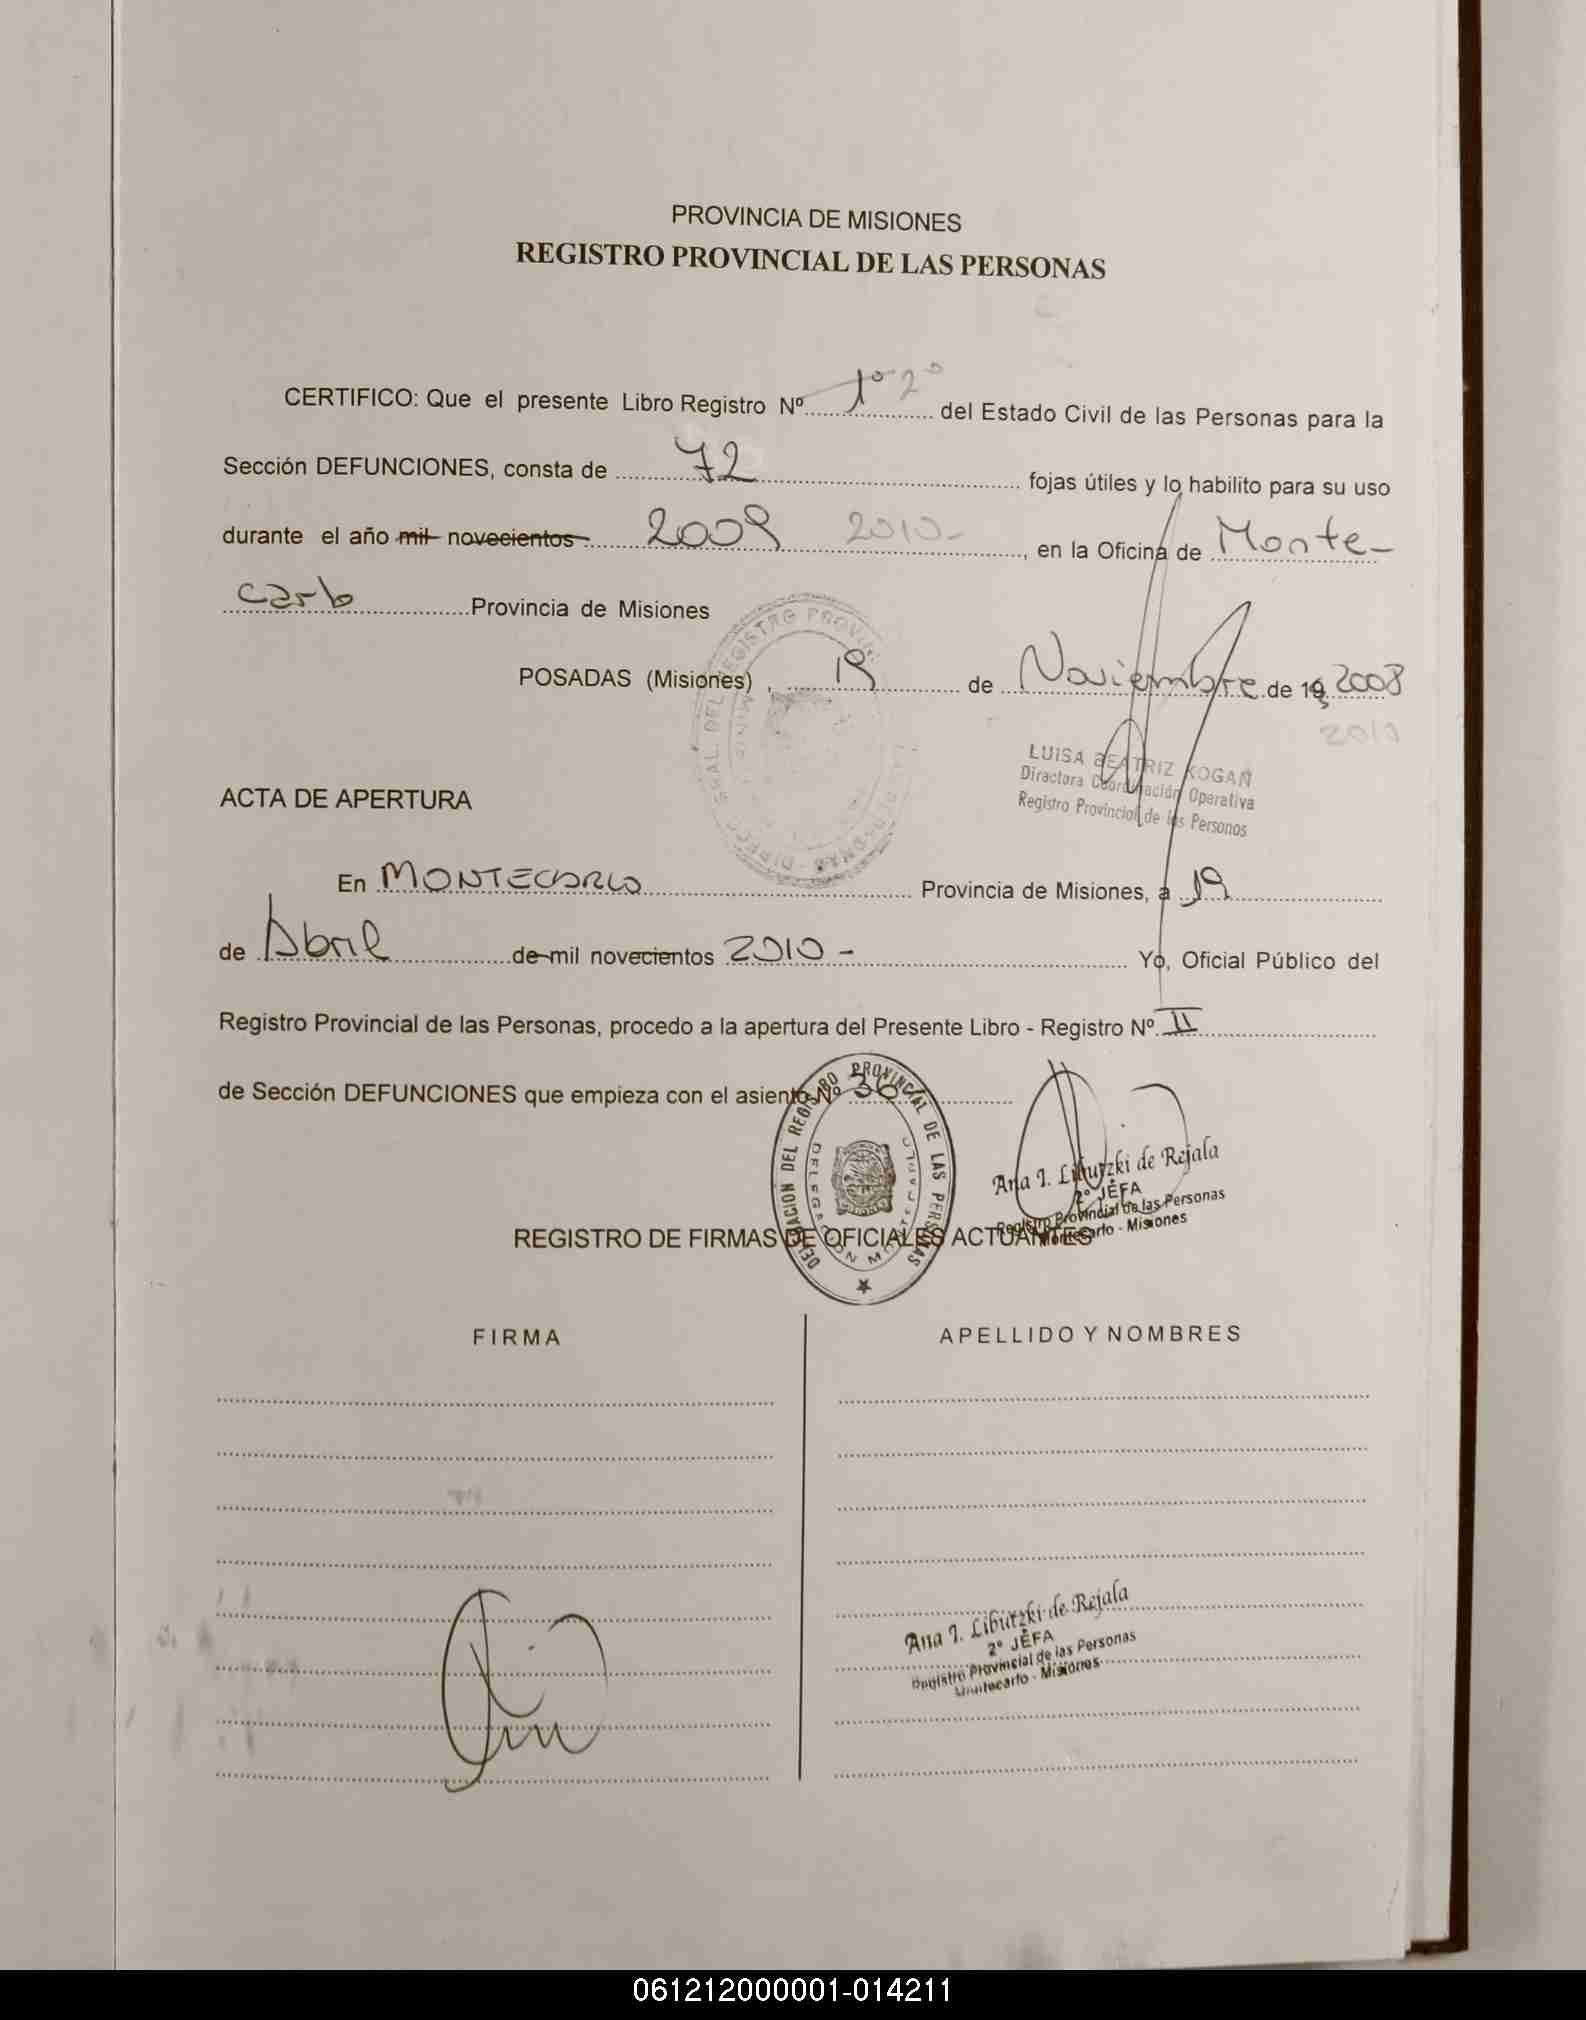 PROVINCIA DE MISIONES
REGISTRO PROVINCIAL DE LAS PERSONAS
CERTIFICO: Que el presente Libro Registro Nº 1º 2º del Estado Civil de las Personas para la
Sección DEFUNCIONES, consta de 72 fojas útiles y lo habilito para su uso
durante el año mil novecientos 2009 2010- en la Oficina de Monte-
carlo Provincia de Misiones
POSADAS (Misiones), 19 de Noviembre de 19 2008
2010
LUISA BEATRIZ KOGAN
Directora Coordinación Operativa
Registro Provincial de las Personas
ACTA DE APERTURA
En MONTECARLO Provincia de Misiones, a 19
de Abril de mil novecientos 2010 - Yo, Oficial Público del
Registro Provincial de las Personas, procedo a la apertura del Presente Libro - Registro Nº II
de Sección DEFUNCIONES que empieza con el asiento Nº 36
DELEGACION DEL REGISTRO PROVINCIAL DE LAS PERSONAS
DELEGACION MONTECARLO
Ana I. Libutzki de Rejala
2º JEFA
Registro Provincial de las Personas
Montecarlo - Misiones
REGISTRO DE FIRMAS DE OFICIALES ACTUANTES
FIRMA APELLIDO Y NOMBRES
Ana I. Libutzki de Rejala
2º JEFA
Registro Provincial de las Personas
Montecarlo - Misiones
061212000001-014211